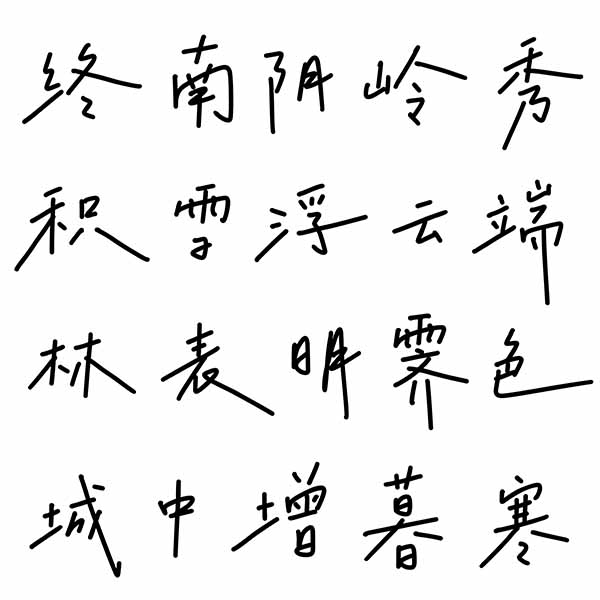 终南阴岭秀
积雪浮云端
林表明霁色
城中增暮寒